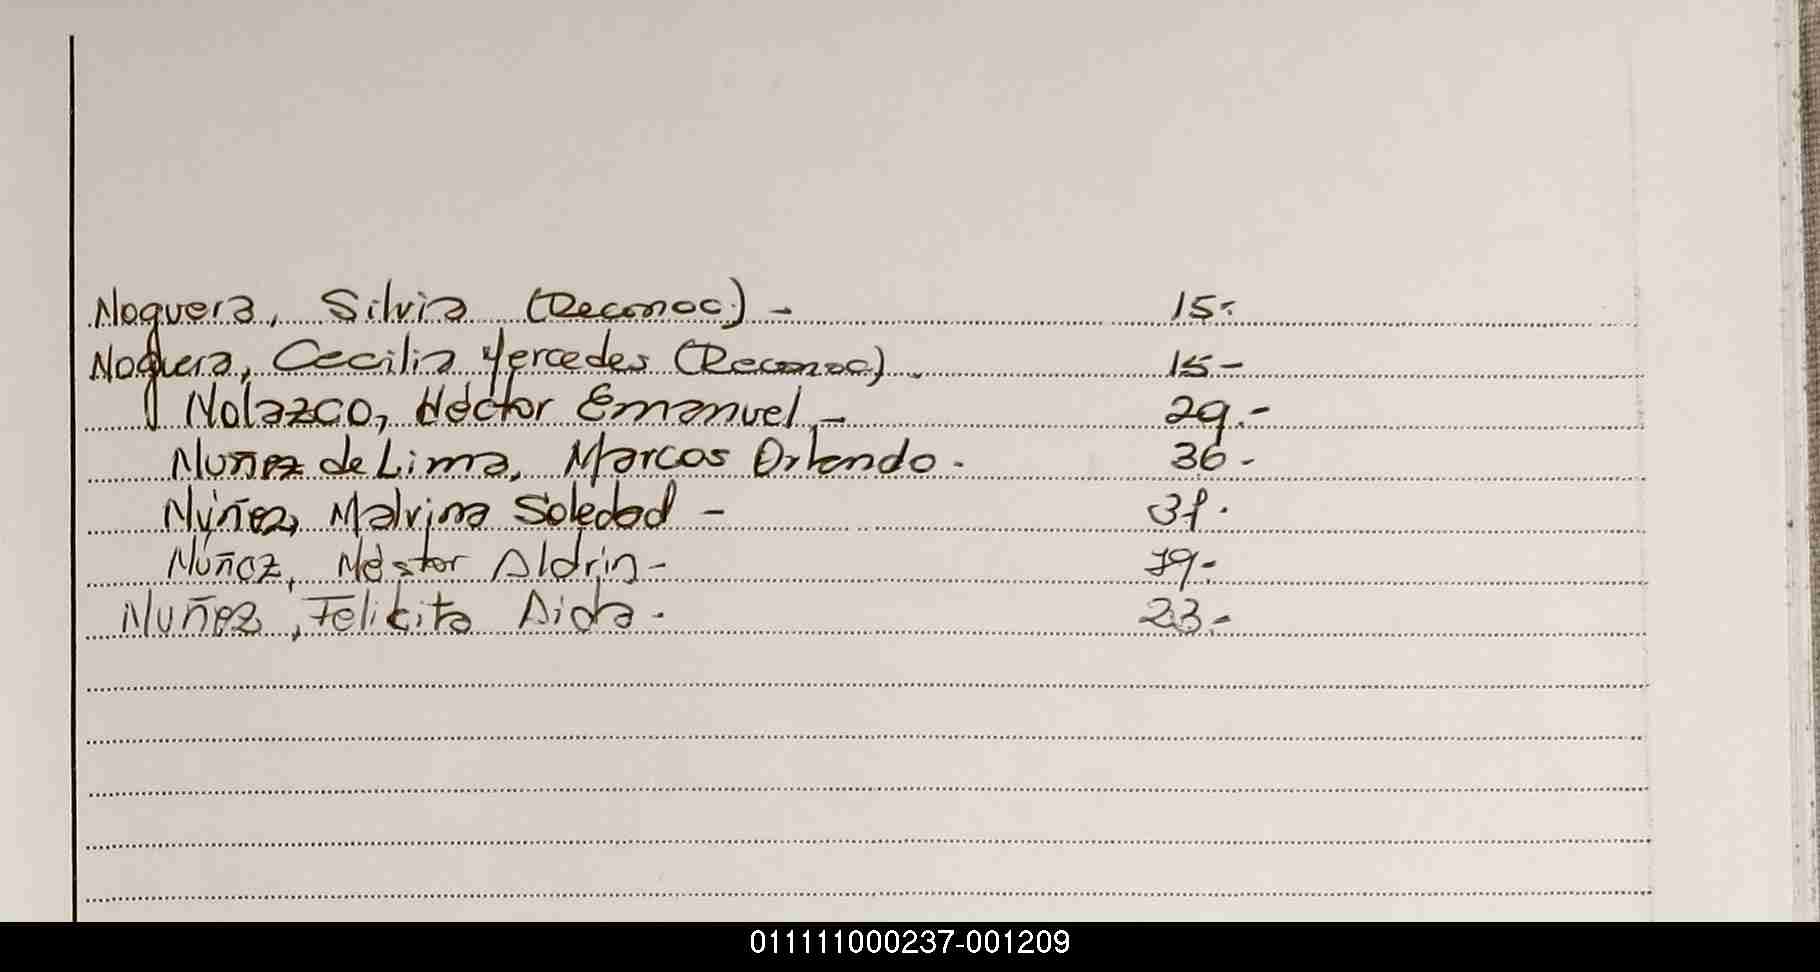 Noguera, Silvia (Reconoc) - 15.
Noguera, Cecilia Mercedes (Reconoc). 15-
Nolazco, Héctor Emanuel.- 29.-
Nuñez de Lima, Marcos Orlando. 36-
Núñez, Malvina Soledad -
Núñoz, Néstor Aldrin-
Nuñez, Felicita Aida. 23.-
011111000237-001209